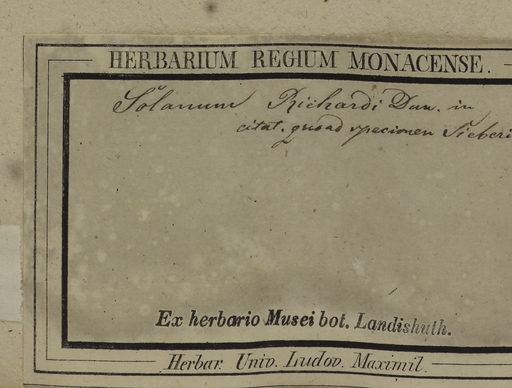 HERBARIUM REGIUM MONACENSE.
Solanum Richardi Dun. in
citat. quoad specimen Sieberi
Ex herbario Musei bot. Landishuth.
Herbar. Univ. Ludov. Maximil.